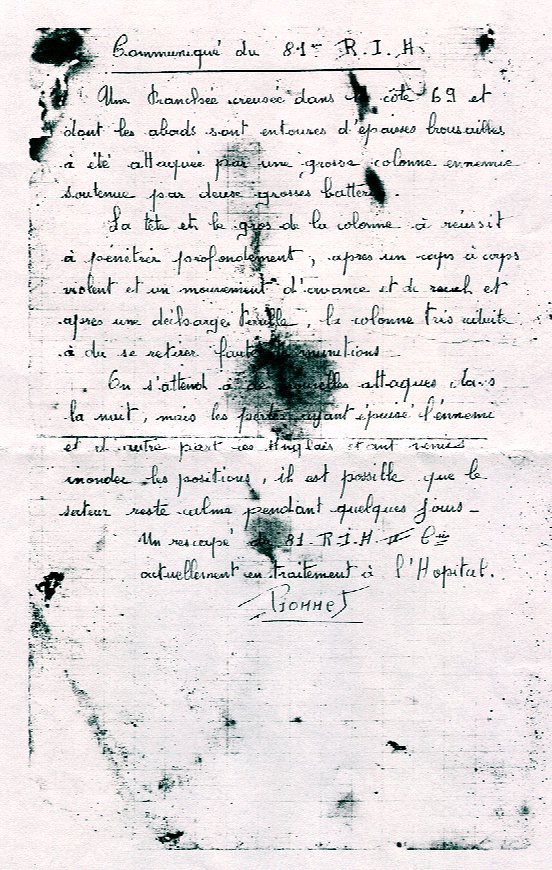 Communiqué du 81me R.I.H.
Une tranchée creusée dans la côte 69 et
dont les abords sont entourés d'épaisses brousailles
à été attaquée par une grosse colonne ennemie
soutenue par deux grosses batteries.
La tête et le gros de la colonne à réussit
à pénétrer profondement, après un corps à corps
violent et un mouvement d'avance et de recul et
après une décharge terrible, la colonne très réduite
à du se retirer faute de munitions
On s'attend à de nouvelles attaques dans
la nuit, mais les pertes ayant épuisé l'énnemi
et d'autre part les Anglais étant venus
inonder les positions, il est possible que le
secteur reste calme pendant quelques jours -
Un rescapé du 81 R.I.H. Cie
actuellement en traitement à l'Hopital.
Bonnet